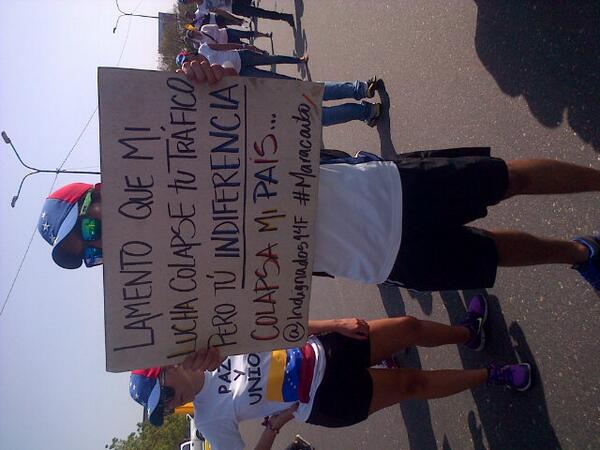 LAMENTO QUE MI
LUCHA COLAPSE TU TRÁFICO
PERO TÚ INDIFERENCIA
COLAPSA MI PAÍS...
@Indignados14F #Maracaibo
PAZ
Y
UNIO